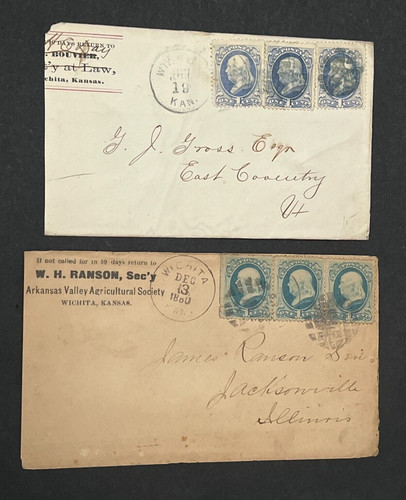 10 DAYS RETURN TO
HOUVER,
y at Law,
chita, Kansas.
19
KAN.
G. J. Gross Esqr
East Coventry
Vt
If not called for in 10 days return to
W. H. RANSON, Sec'y
Arkansas Valley Agricultural Society
WICHITA, KANSAS.
WICHITA
DEC
13
1880
James Ranson
Jacksonville
Illinois